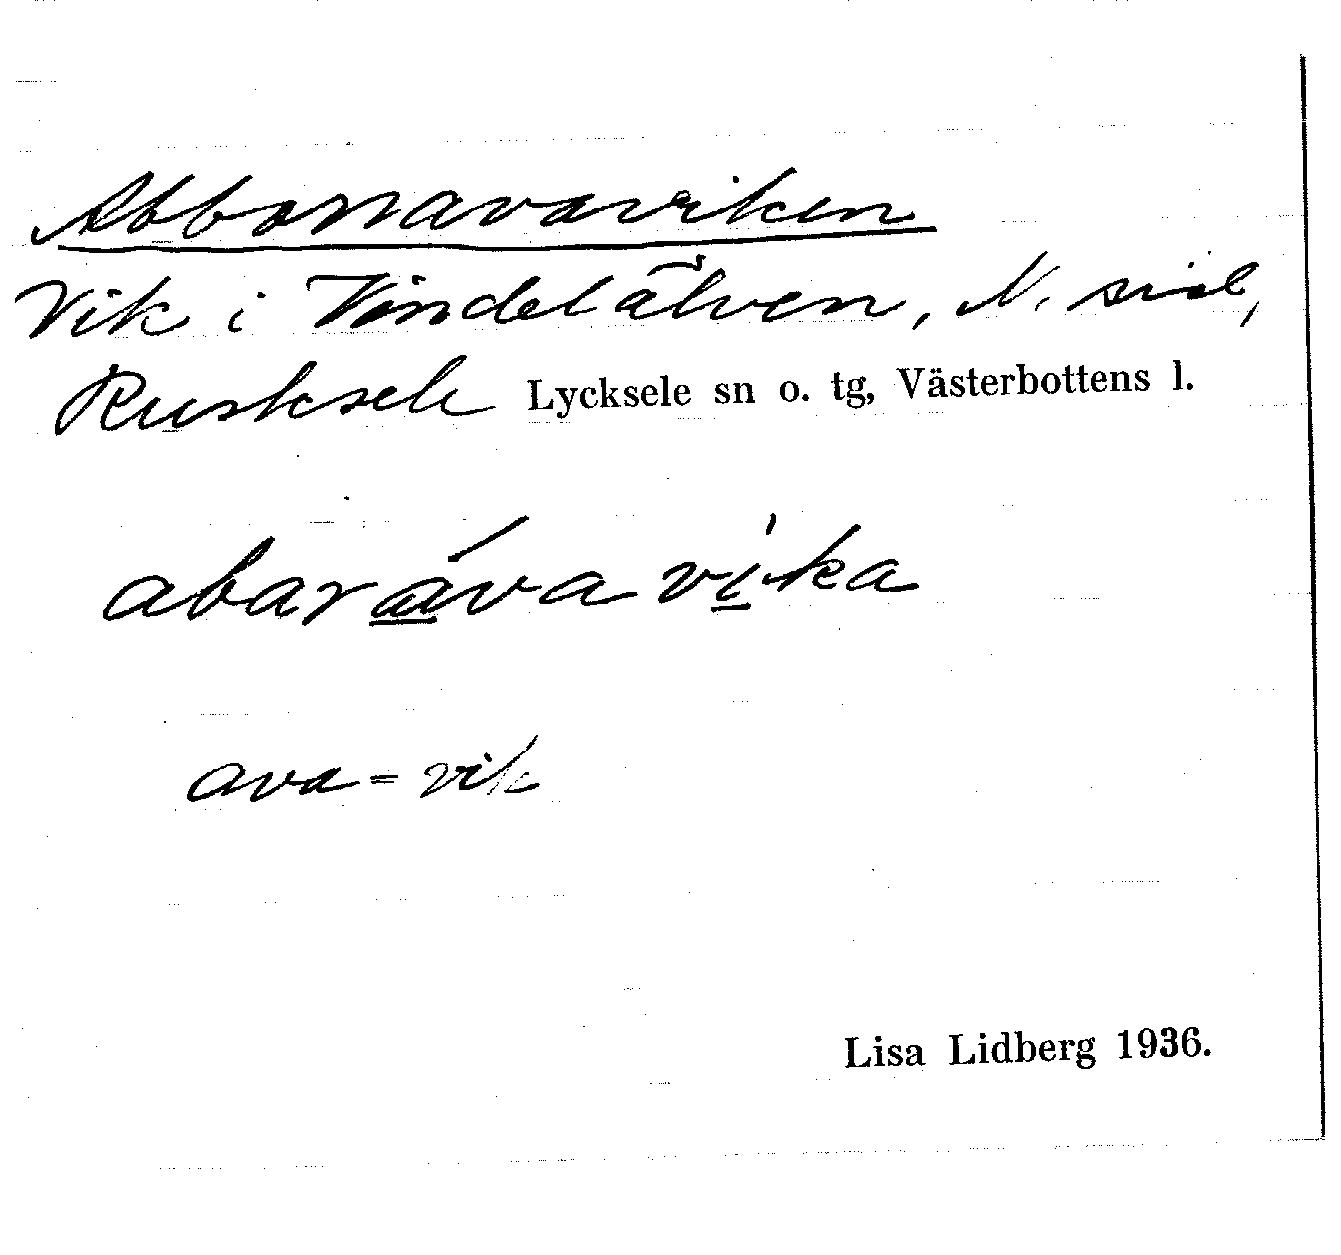 Abbonavaviken
Vik i Vindelälven, N. sid,
Rusksele Lycksele sn o. tg, Västerbottens l.
abaráva víka
ava = vik
Lisa Lidberg 1936.